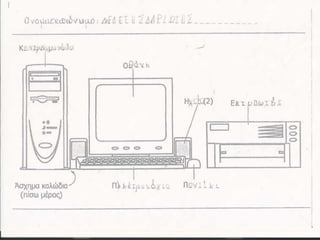 Ονοματεπώνυμο:
Κεντρική μονάδα
Οθόνη
Ηχεία(2)
Εκτυπωτής
Άσχημα καλώδια
(πίσω μέρος)
Πληκτρολόγιο
Ποντίκι